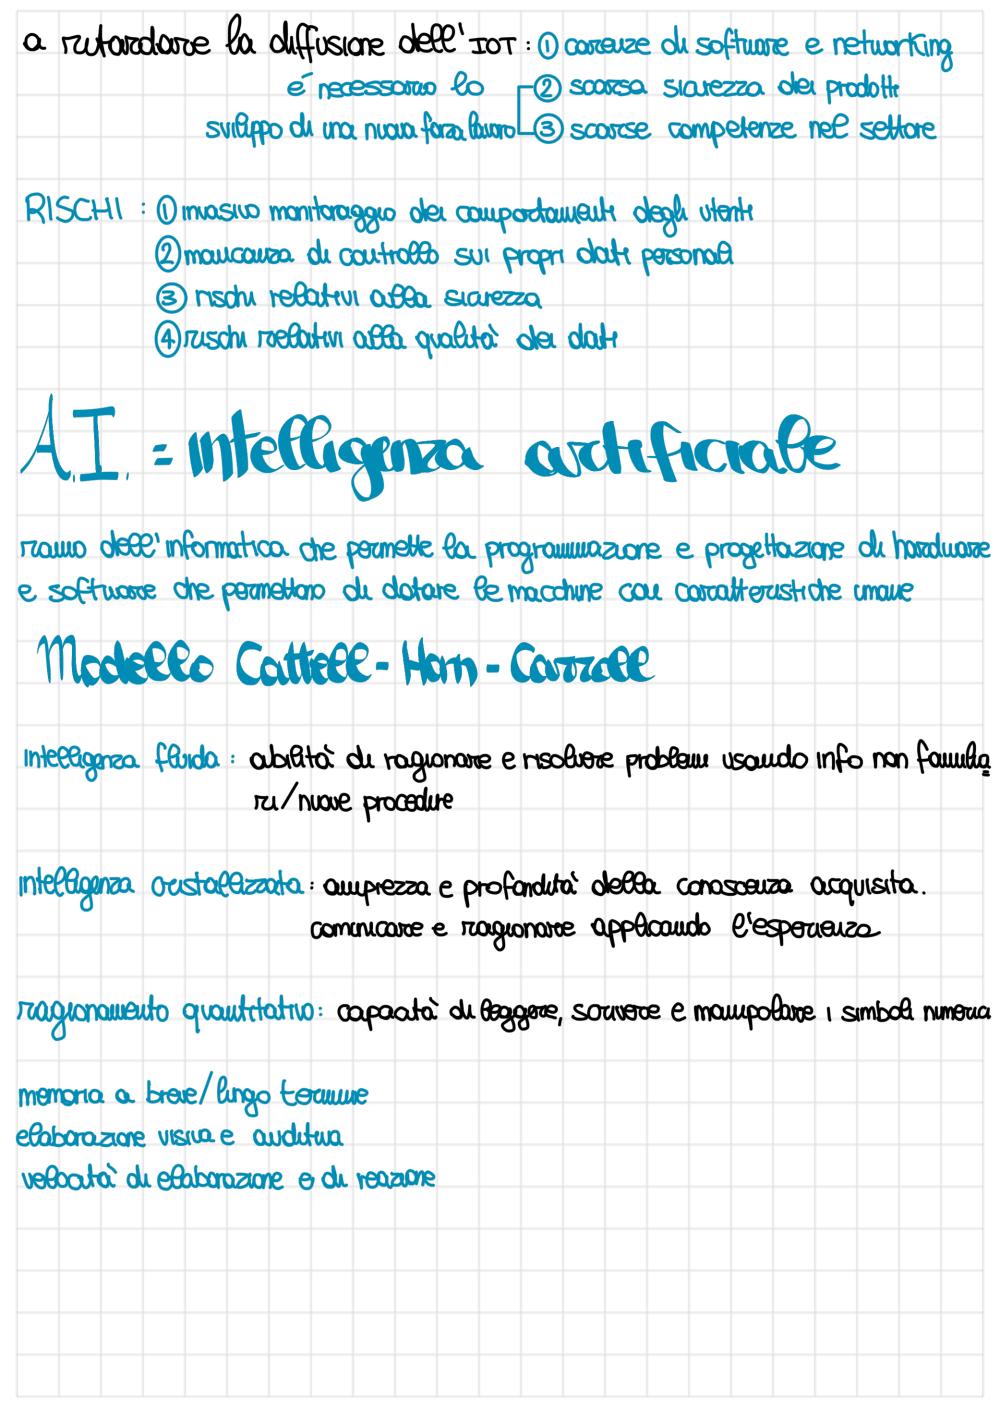 a ritardare la diffusione dell'IOT : ① carenze di software e networking
é necessario lo ② scarsa sicurezza dei prodotti
sviluppo di una nuova forza lavoro ③ scarse competenze nel settore
RISCHI : ① invasivo monitoraggio dei comportamenti degli utenti
② mancanza di controllo sui propri dati personali
③ rischi relativi alla sicurezza
④ rischi relativi alla qualità dei dati
A.I. = intelligenza artificiale
ramo dell'informatica che permette la programmazione e progettazione di hardware
e software che permettono di dotare le macchine con caratteristiche umane
Modello Cattell - Horn - Carroll
intelligenza fluida : abilità di ragionare e risolvere problemi usando info non familia
ri/nuove procedure
intelligenza cristallizzata : ampiezza e profondità della conoscenza acquisita.
comunicare e ragionare applicando l'esperienza
ragionamento quantitativo: capacità di leggere, scrivere e manipolare i simboli numerici
memoria a breve/lungo termine
elaborazione visiva e auditiva
velocità di elaborazione e di reazione